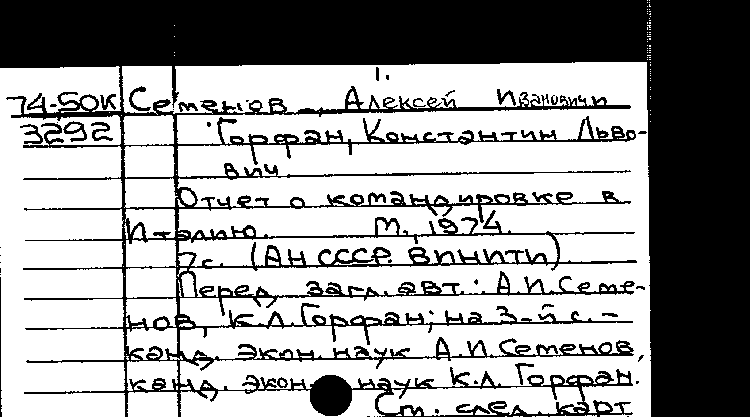 1.
74-50К Семенов, Алексей Иванович и
3292 Горфан, Константин Льво-
вич.
Отчет о командировке в
Италию. М., 1974.
7с. (АН СССР. ВИНИТИ)
Перед загл. авт.: А.И.Семе-
нов, К.Л.Горфан; на 3-й с. -
канд. экон. наук А.И.Семенов,
канд. экон. наук К.Л. Горфан.
См. след. карт